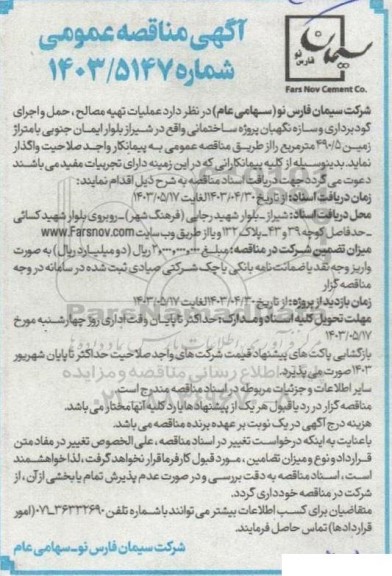 آگهی مناقصه عمومی
شماره ۱۴۰۳/۵۱۴۷
سیمان
فارس نو
Fars Nov Cement Co.
شرکت سیمان فارس نو (سهامی عام) در نظر دارد عملیات تهیه مصالح، حمل و اجرای
گودبرداری و سازه نگهبان پروژه ساختمانی واقع در شیراز بلوار ایمان جنوبی با متراژ
زمین ۴۹۰/۵ مترمربع را از طریق مناقصه عمومی به پیمانکار واجد صلاحیت واگذار
نماید. بدینوسیله از کلیه پیمانکارانی که در این زمینه دارای تجربیات مفید می باشند
دعوت می گردد جهت دریافت اسناد مناقصه به شرح ذیل اقدام نمایند:
زمان دریافت اسناد: از تاریخ ۱۴۰۳/۰۴/۳۰ لغایت ۱۴۰۳/۰۵/۱۷
محل دریافت اسناد: شیراز ـ بلوار شهید رجایی (فرهنگ شهر) ـ روبروی بلوار شهید کسائی
ـ حدفاصل کوچه ۳۹ و ۴۳ ـ پلاک ۱۳۲ و یا از طریق وب سایت www.Farsnov.com
میزان تضمین شرکت در مناقصه: مبلغ ۲،۰۰۰،۰۰۰،۰۰۰ ریال (دو میلیارد ریال) به صورت
واریز وجه نقد یا ضمانت نامه بانکی یا چک شرکتی صیادی ثبت شده در سامانه در وجه
مناقصه گزار
زمان بازدید از پروژه: از تاریخ ۱۴۰۳/۰۴/۳۰ لغایت ۱۴۰۳/۰۵/۱۷
مهلت تحویل کلیه اسناد و مدارک: حداکثر تا پایان وقت اداری روز چهارشنبه مورخ
۱۴۰۳/۰۵/۱۷
بازگشایی پاکت های پیشنهاد قیمت شرکت های واجد صلاحیت حداکثر تا پایان شهریور
۱۴۰۳ صورت می پذیرد.
سایر اطلاعات و جزئیات مربوطه در اسناد مناقصه مندرج است.
مناقصه گزار در رد یا قبول هر یک از پیشنهادها یا رد کلیه آنها مختار می باشد.
هزینه درج آگهی در یک نوبت بر عهده برنده مناقصه می باشد.
با عنایت به اینکه درخواست تغییر در اسناد مناقصه، علی الخصوص تغییر در مفاد متن
قرارداد و نوع و میزان تضامین، مورد قبول کارفرما قرار نخواهد گرفت، لذا خواهشمند
است، اسناد مناقصه به دقت بررسی و در صورت عدم پذیرش تمام یا بخشی از آن، از
شرکت در مناقصه خودداری گردد.
متقاضیان برای کسب اطلاعات بیشتر می توانند با شماره تلفن ۳۶۳۳۲۶۹۰-۰۷۱ (امور
قراردادها) تماس حاصل فرمایند.
شرکت سیمان فارس نو ـ سهامی عام